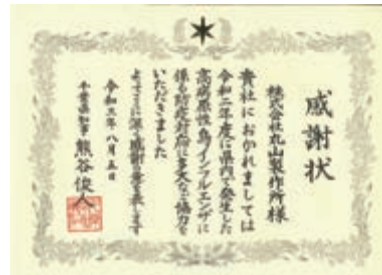 感謝状
株式会社丸山製作所様
貴社におかれましては
令和二年度に県内で発生した
高病原性鳥インフルエンザに
係る防疫対応に多大なご協力を
いただきました
よってここに深く感謝の意を表します
令和三年八月五日
千葉県知事 熊谷俊人